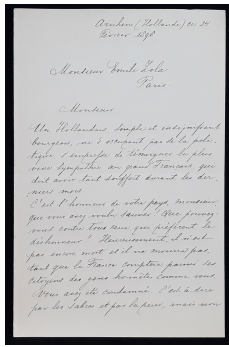 Arnhem (Hollande) ce 24
Février 1898
Monsieur Emile Zola
Paris
Monsieur
Un Hollandais, simple et insignifiant
bourgeois, ne s'occupant pas de la poli-
tique s'empresse de témoigner la plus
vive sympathie au grand Français qui
doit avoir tant souffert durant les der-
niers mois
C'est l'honneur de votre pays, monsieur,
que vous avez voulu sauver! Que pouvez-
vous contre tous ceux qui préfèrent le
déshonneur? Heureusement, il n'est
pas encore mort et il ne mourra pas,
tant que la France comptera parmi ses
citoyens des gens honnêtes comme vous.
Vous avez été condamné. C'est à dire
par les sabres et par la peur, mais non